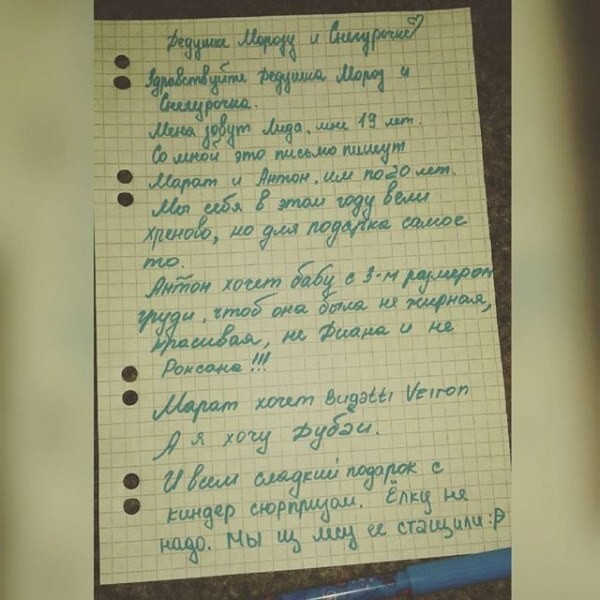 Дедушке Морозу и Снегурочке♡
Здравствуйте Дедушка Мороз и
Снегурочка.
Меня зовут Лида, мне 19 лет.
Со мной это письмо пишут
Марат и Антон, им по 20 лет.
Мы себя в этом году вели
хреново, но для подарка самое
то.
Антон хочет бабу с 3-м размером
груди, чтоб она была не жирная,
красивая, не Диана и не
Роксана!!!
Марат хочет Bugatti Veiron
А я хочу Дубай.
И всем сладкий подарок с
киндер сюрпризом. Ёлку не
надо. Мы из лесу её стащили :P